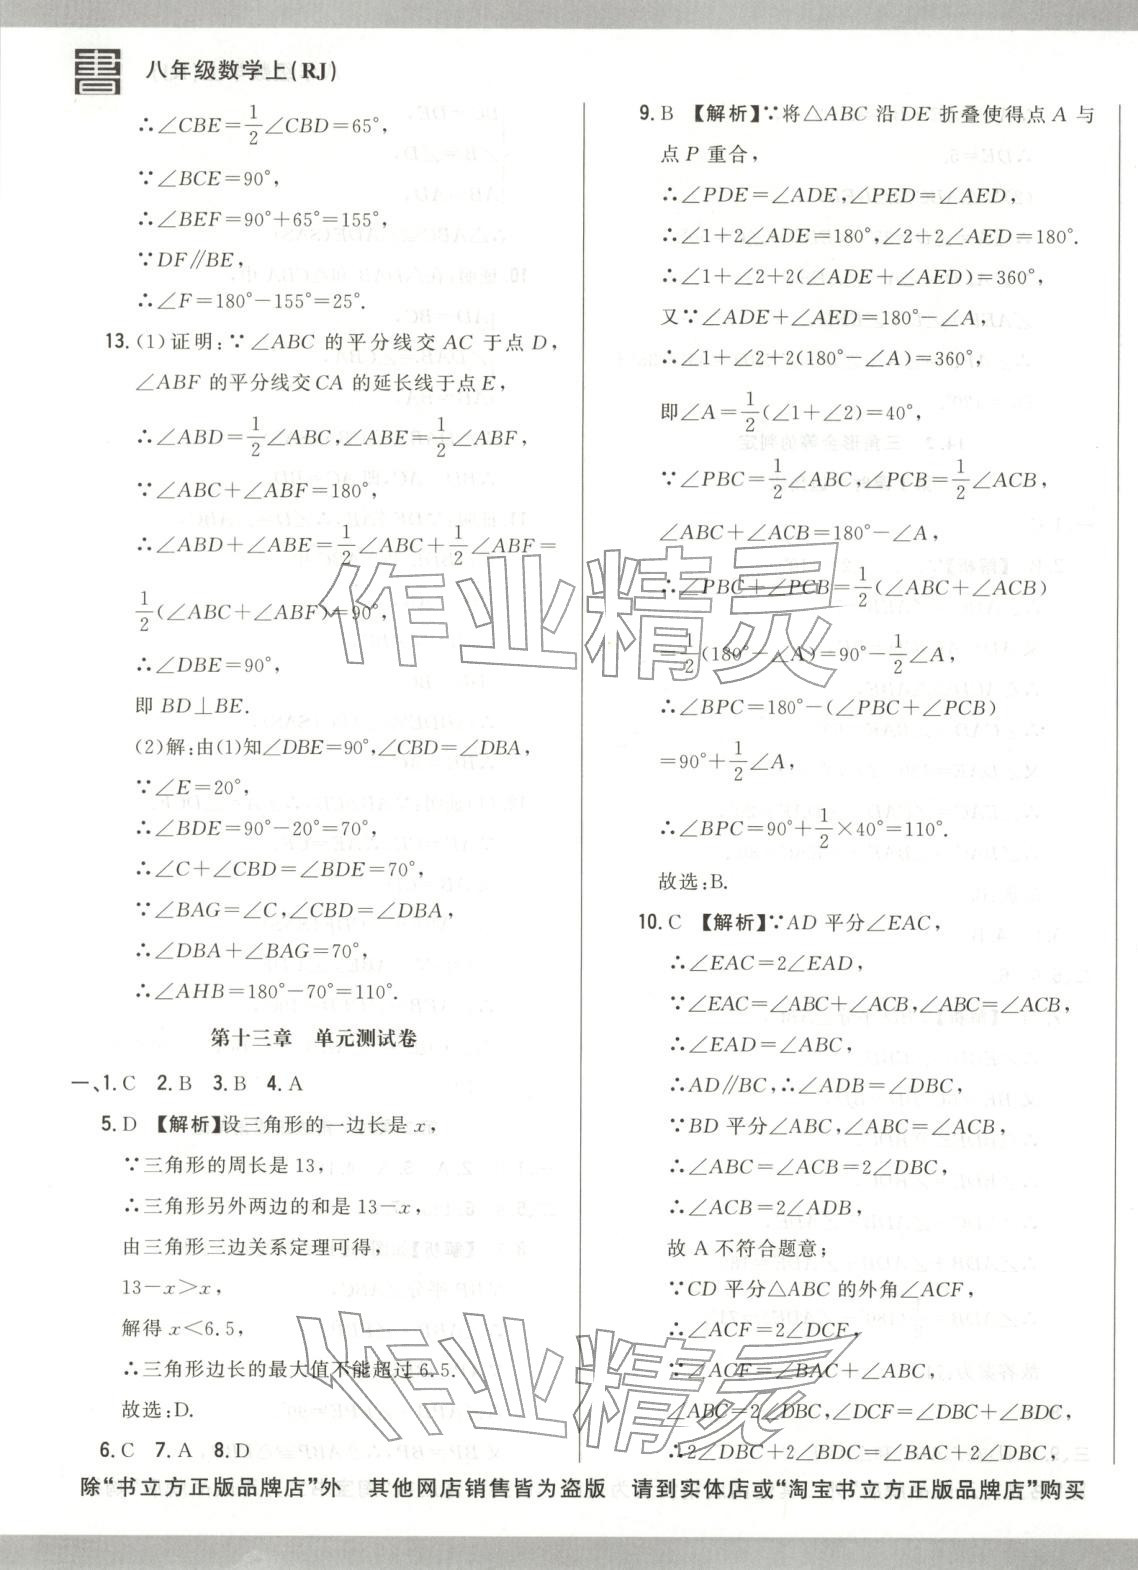 書
八年级数学上(RJ)
∴∠CBE=1/2∠CBD=65°,
∵∠BCE=90°,
∴∠BEF=90°+65°=155°,
∵DF∥BE,
∴∠F=180°-155°=25°.
13.(1)证明:∵∠ABC 的平分线交 AC 于点 D,
∠ABF 的平分线交 CA 的延长线于点 E,
∴∠ABD=1/2∠ABC,∠ABE=1/2∠ABF,
∵∠ABC+∠ABF=180°,
∴∠ABD+∠ABE=1/2∠ABC+1/2∠ABF=
1/2(∠ABC+∠ABF)=90°,
∴∠DBE=90°,
即 BD⊥BE.
(2)解:由(1)知∠DBE=90°,∠CBD=∠DBA,
∵∠E=20°,
∴∠BDE=90°-20°=70°,
∴∠C+∠CBD=∠BDE=70°,
∵∠BAG=∠C,∠CBD=∠DBA,
∴∠DBA+∠BAG=70°,
∴∠AHB=180°-70°=110°.
第十三章 单元测试卷
一、1. C 2. B 3. B 4. A
5. D 【解析】设三角形的一边长是 x,
∵三角形的周长是 13,
∴三角形另外两边的和是 13-x,
由三角形三边关系定理可得,
13-x>x,
解得 x<6.5,
∴三角形边长的最大值不能超过 6.5.
故选:D.
6. C 7. A 8. D
9. B 【解析】∵将△ABC 沿 DE 折叠使得点 A 与
点 P 重合,
∴∠PDE=∠ADE,∠PED=∠AED,
∴∠1+2∠ADE=180°,∠2+2∠AED=180°.
∴∠1+∠2+2(∠ADE+∠AED)=360°,
又∵∠ADE+∠AED=180°-∠A,
∴∠1+∠2+2(180°-∠A)=360°,
即∠A=1/2(∠1+∠2)=40°,
∵∠PBC=1/2∠ABC,∠PCB=1/2∠ACB,
∠ABC+∠ACB=180°-∠A,
∴∠PBC+∠PCB=1/2(∠ABC+∠ACB)
=1/2(180°-∠A)=90°-1/2∠A,
∴∠BPC=180°-(∠PBC+∠PCB)
=90°+1/2∠A,
∴∠BPC=90°+1/2×40°=110°.
故选:B.
10. C 【解析】∵AD 平分∠EAC,
∴∠EAC=2∠EAD,
∵∠EAC=∠ABC+∠ACB,∠ABC=∠ACB,
∴∠EAD=∠ABC,
∴AD∥BC,∴∠ADB=∠DBC,
∵BD 平分∠ABC,∠ABC=∠ACB,
∴∠ABC=∠ACB=2∠DBC,
∴∠ACB=2∠ADB,
故 A 不符合题意;
∵CD 平分△ABC 的外角∠ACF,
∴∠ACF=2∠DCF,
∵∠ACF=∠BAC+∠ABC,
∠ABC=2∠DBC,∠DCF=∠DBC+∠BDC,
∴2∠DBC+2∠BDC=∠BAC+2∠DBC,
除“书立方正版品牌店”外 其他网店销售皆为盗版 请到实体店或“淘宝书立方正版品牌店”购买
作业精灵
作业精灵